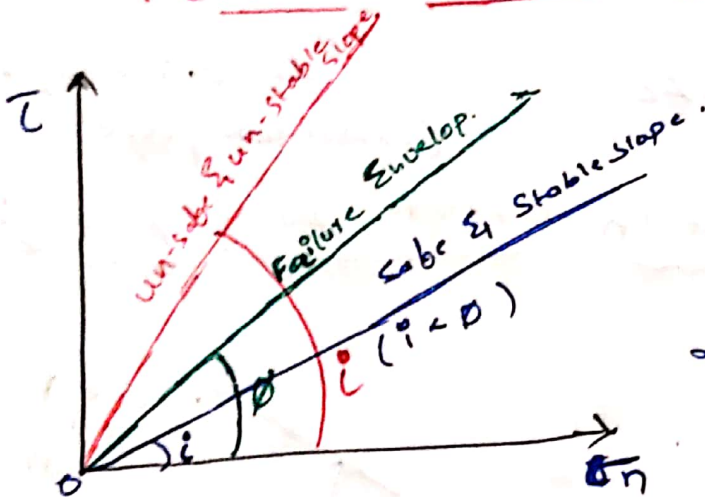 τ
un-safe & un-stable slope
Failure Envelop.
safe & stable slope.
(i < Ø)
i
Ø
i
0
σn